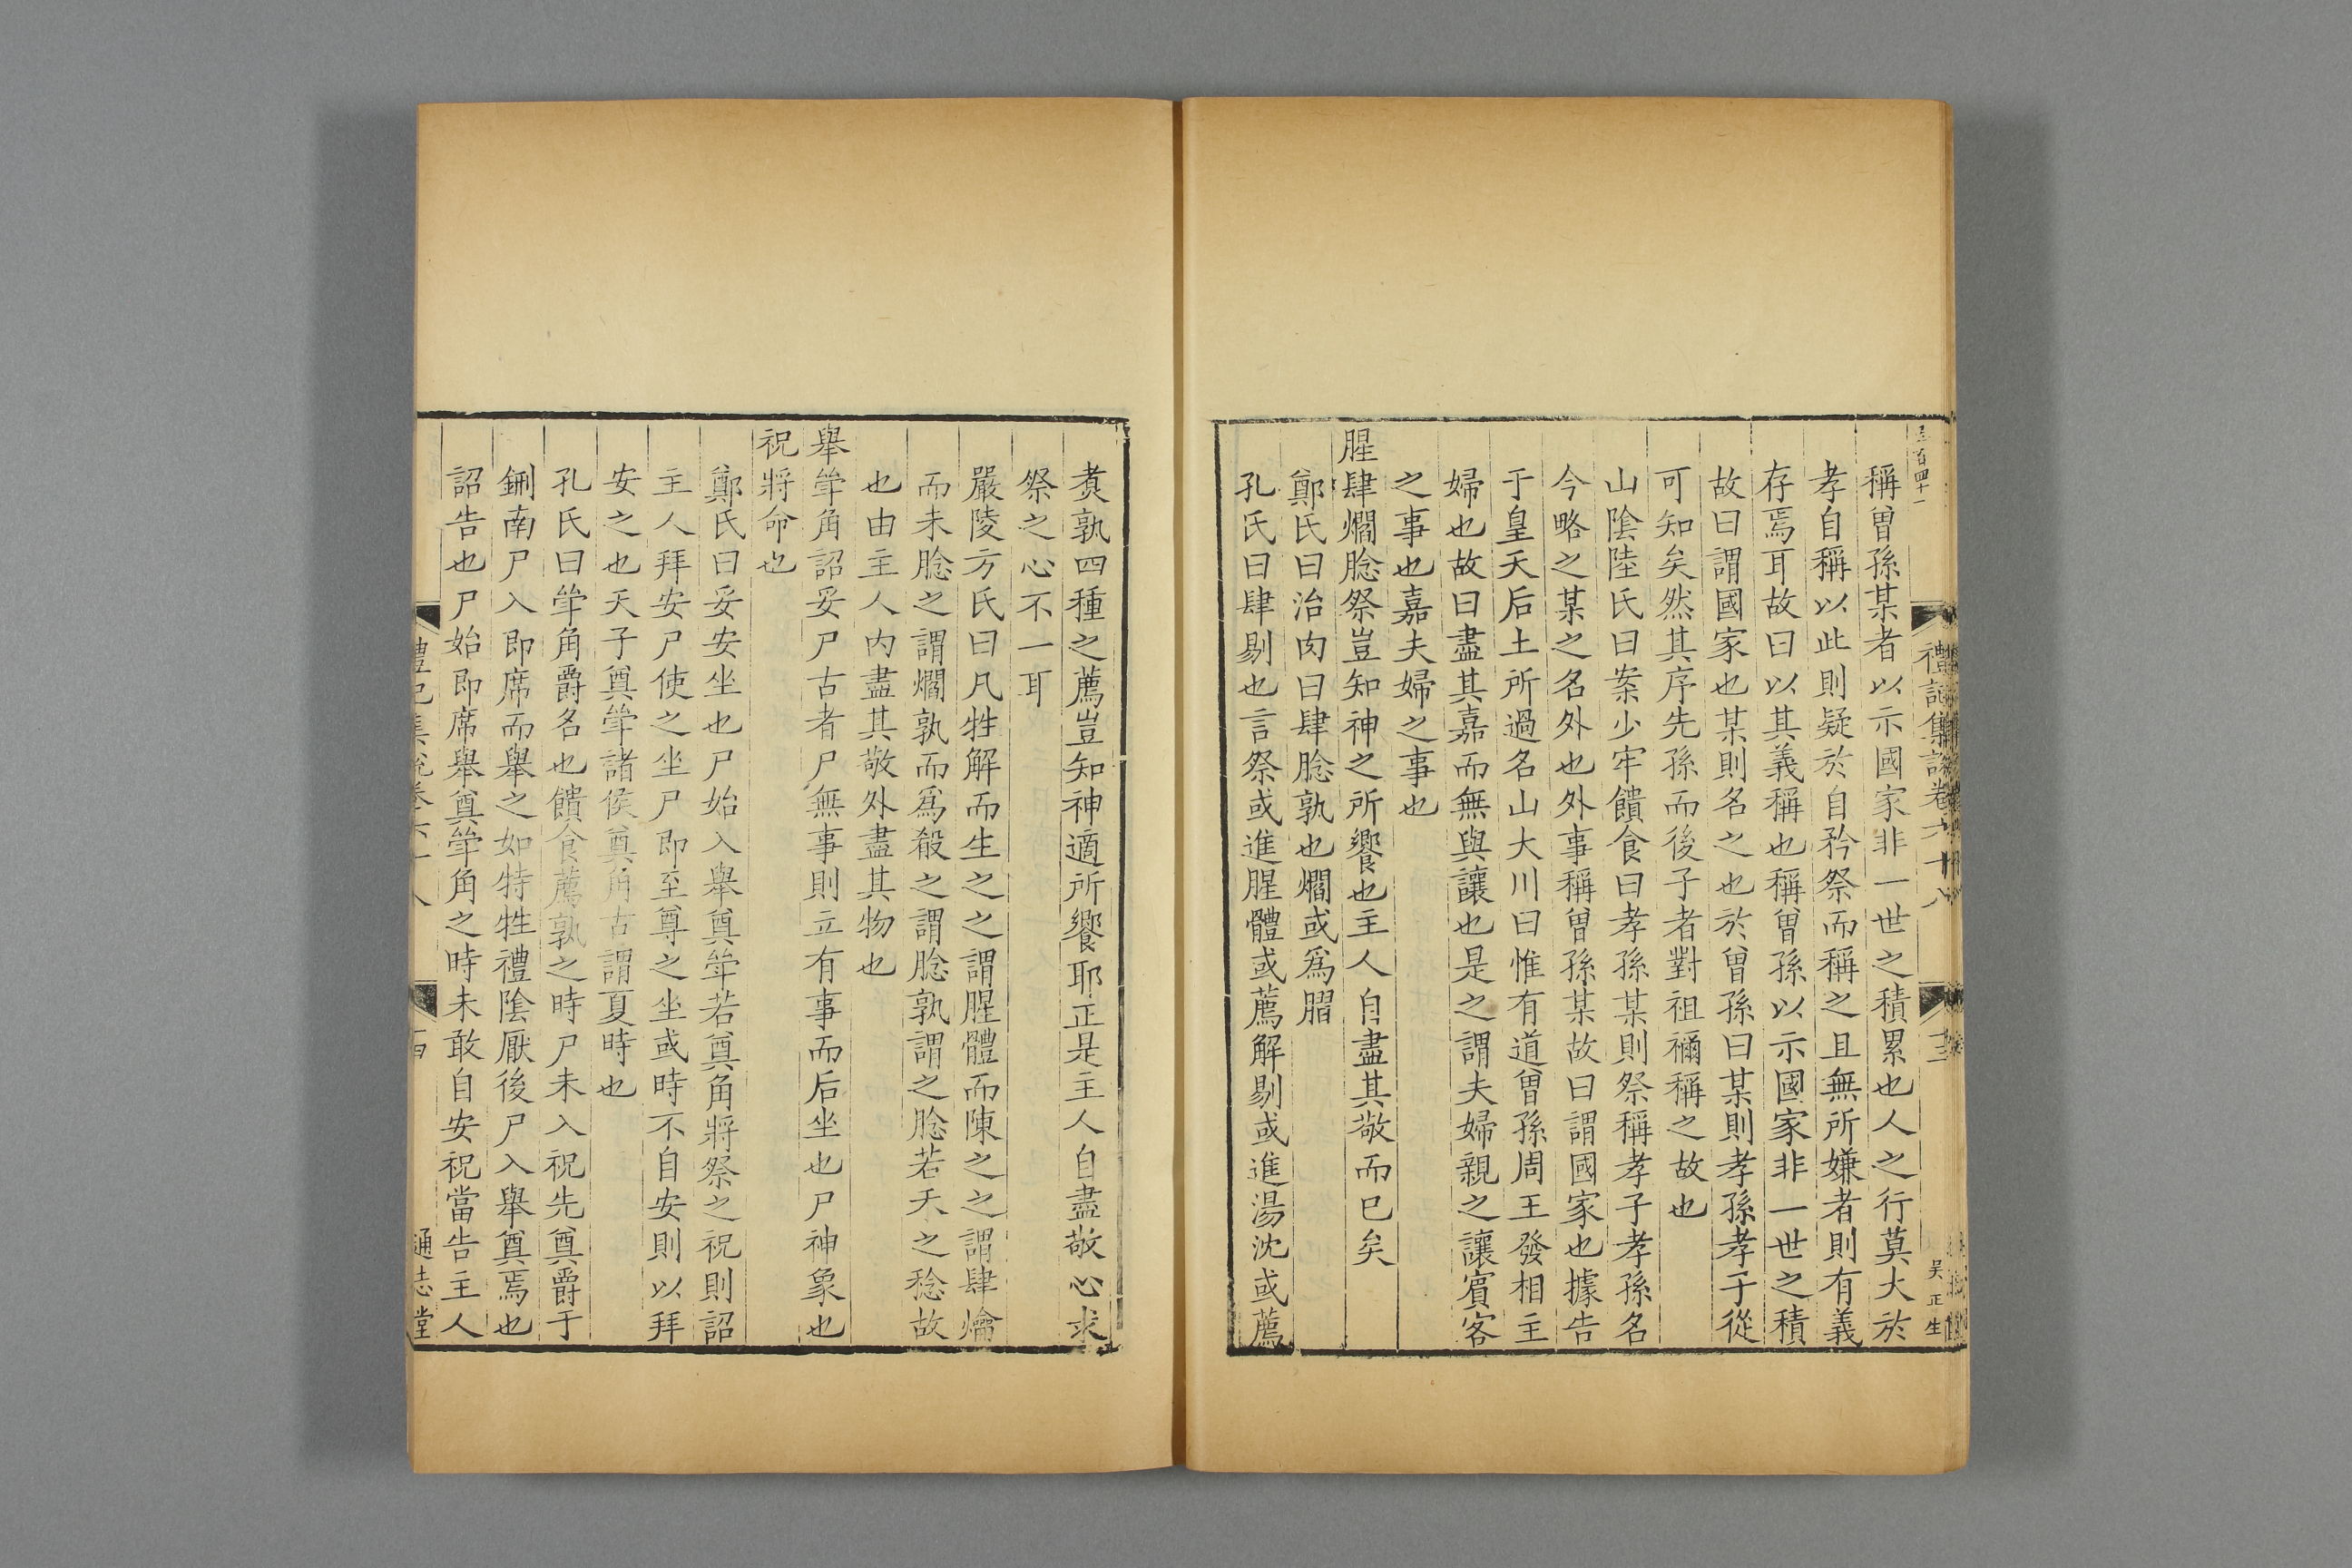 禮記集說卷六十八
十三
吳正生
稱曾孫某者以示國家非一世之積累也人之行莫大於
孝自稱以此則疑於自矜祭而稱之且無所嫌者則有義
存焉耳故曰以其義稱也稱曾孫以示國家非一世之積
故曰謂國家也某則名之也於曾孫曰某則孝孫孝子從
可知矣然其序先孫而後子者對祖禰稱之故也
山陰陸氏曰案少牢饋食曰孝孫某則祭稱孝子孝孫名
今略之某之名外也外事稱曾孫某故曰謂國家也據告
于皇天后土所過名山大川曰惟有道曾孫周王發相主
婦也故曰盡其嘉而無與讓也是之謂夫婦親之讓賓客
之事也嘉夫婦之事也
腥肆爓腍祭豈知神之所饗也主人自盡其敬而已矣
鄭氏曰治肉曰肆腍孰也爓或為膶
孔氏曰肆剔也言祭或進腥體或薦解剔或進湯沈或薦
煑孰四種之薦豈知神適所饗耶正是主人自盡敬心求
祭之心不一耳
嚴陵方氏曰凡牲解而生之之謂腥體而陳之之謂肆爚
而未腍之謂爓孰而為殽之謂腍孰謂之腍若天之稔故
也由主人內盡其敬外盡其物也
舉斝角詔妥尸古者尸無事則立有事而后坐也尸神象也
祝將命也
鄭氏曰妥安坐也尸始入舉奠斝若奠角將祭之祝則詔
主人拜安尸使之坐尸即至尊之坐或時不自安則以拜
安之也天子奠斝諸侯奠角古謂夏時也
孔氏曰斝角爵名也饋食薦孰之時尸未入祝先奠爵于
鉶南尸入即席而舉之如特牲禮陰厭後尸入舉奠焉也
詔告也尸始即席舉奠斝角之時未敢自安祝當告主人
禮記集說卷六十八
十四
通志堂